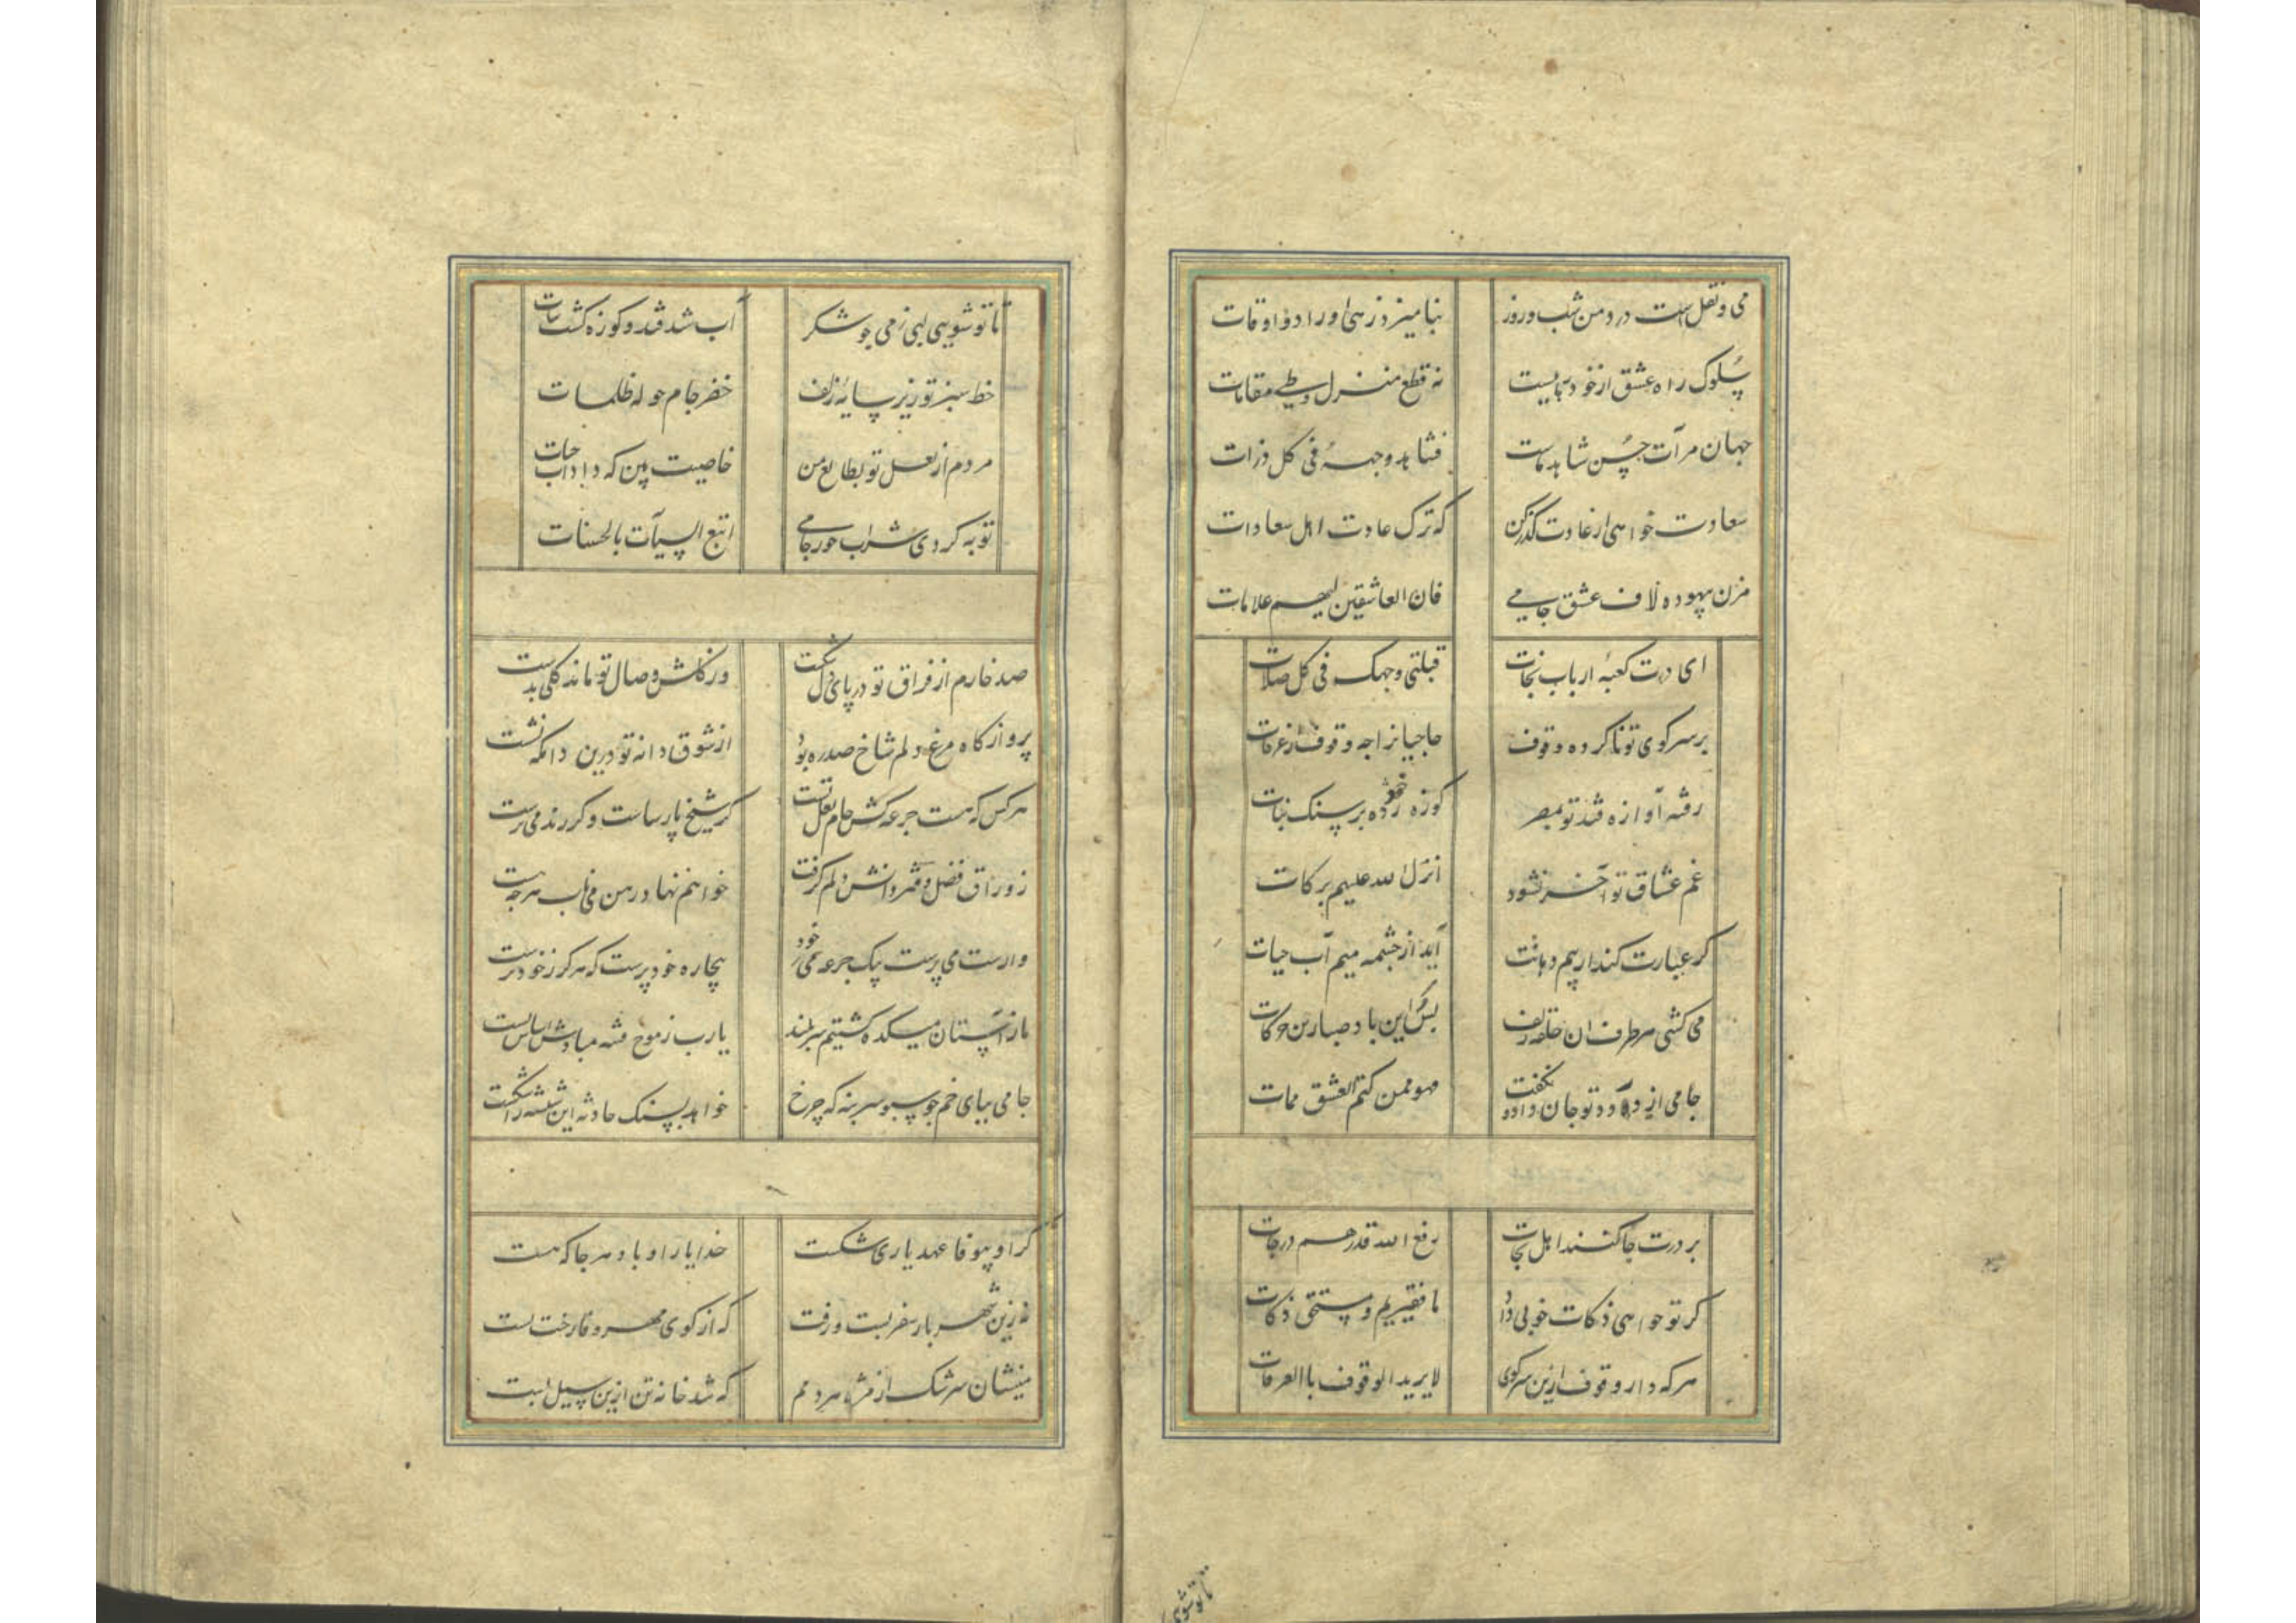 می و نقل است درد من شب و روز نیامیزد ز هی اوراد و اوقات
سلوک راه عشق از خود رهاییست نه قطع منزل و طی مقامات
جهان مرآت حسن شاهد ماست فشاهد وجهه فی کل ذرات
سعادت خواهی از عادت گذر کن که ترک عادت اهل سعادات
مزن بیهوده لاف عشق جامی فان العاشقین لهم علامات
ای درت کعبه ارباب نجات قبلتی وجهک فی کل صلات
بر سر کوی تو ناکرده وقوف حاجیان را چه وقوف از عرفات
رفته آوازه قند تو بمصر کوزه خود زده بر سنگ نبات
غم عشاق تو آخر نشود انزل الله علیهم برکات
گر عبارت کند از میم دهانت آید از چشمه میم آب حیات
می کشی هر طرف آن حلقه زلف بس کن ای باد صبا زین حرکات
جامی از درد تو جان داد و نگفت فهو ممن کتم العشق ممات
بر درت جا کنند اهل نجات رفع الله قدرهم درجات
گر تو خواهی ذکات خوبی داد ما فقیریم و مستحق ذکات
هر که دارد وقوف ازین سر کوی لا یرید الوقوف باالعرفات
تا تو شویی
تا تو شویی لبی ز می چو شکر آب شد قند و کوزه گشت نبات
خط سبز تو زیر سایه زلف خضر جام حوله ظلمات
مردم از لعل تو بطالع من خاصیت بین که داد آب حیات
توبه کردی شراب خور جامی اتبع السیآت بالحسنات
صد خارم از فراق تو در پای دل شکست وز گلشن وصال تو نامد گلی بدست
پروازگاه مرغ دلم شاخ صدره بود از شوق دانه تو درین دامگه نشست
هر کس که هست جرعه کش جام لعل تست گر شیخ پارساست و گر رند می پرست
ز وراق فضل و دفتر دانش دلم گرفت خواهم نهاد رهن می ناب هر چه هست
وارست می پرست بیک جرعه می ز خود بیچاره خود پرست که هرگز ز خود نرست
ما ز آستان میکده گشتیم سربلند یارب ز موج فتنه مبادش اساس پست
جامی بپای خم چو سبو سر بنه که چرخ خواهد بسنگ حادثه این شیشه را شکست
گر او بیوفا عهد یاری شکست خدا یار او باد هر جا که هست
نه زین شهر بار سفر بست و رفت که از کوی مهر و وفا رخت بست
منشان سرشک از مژه مردمم که شد خانه تن ازین سیل پست